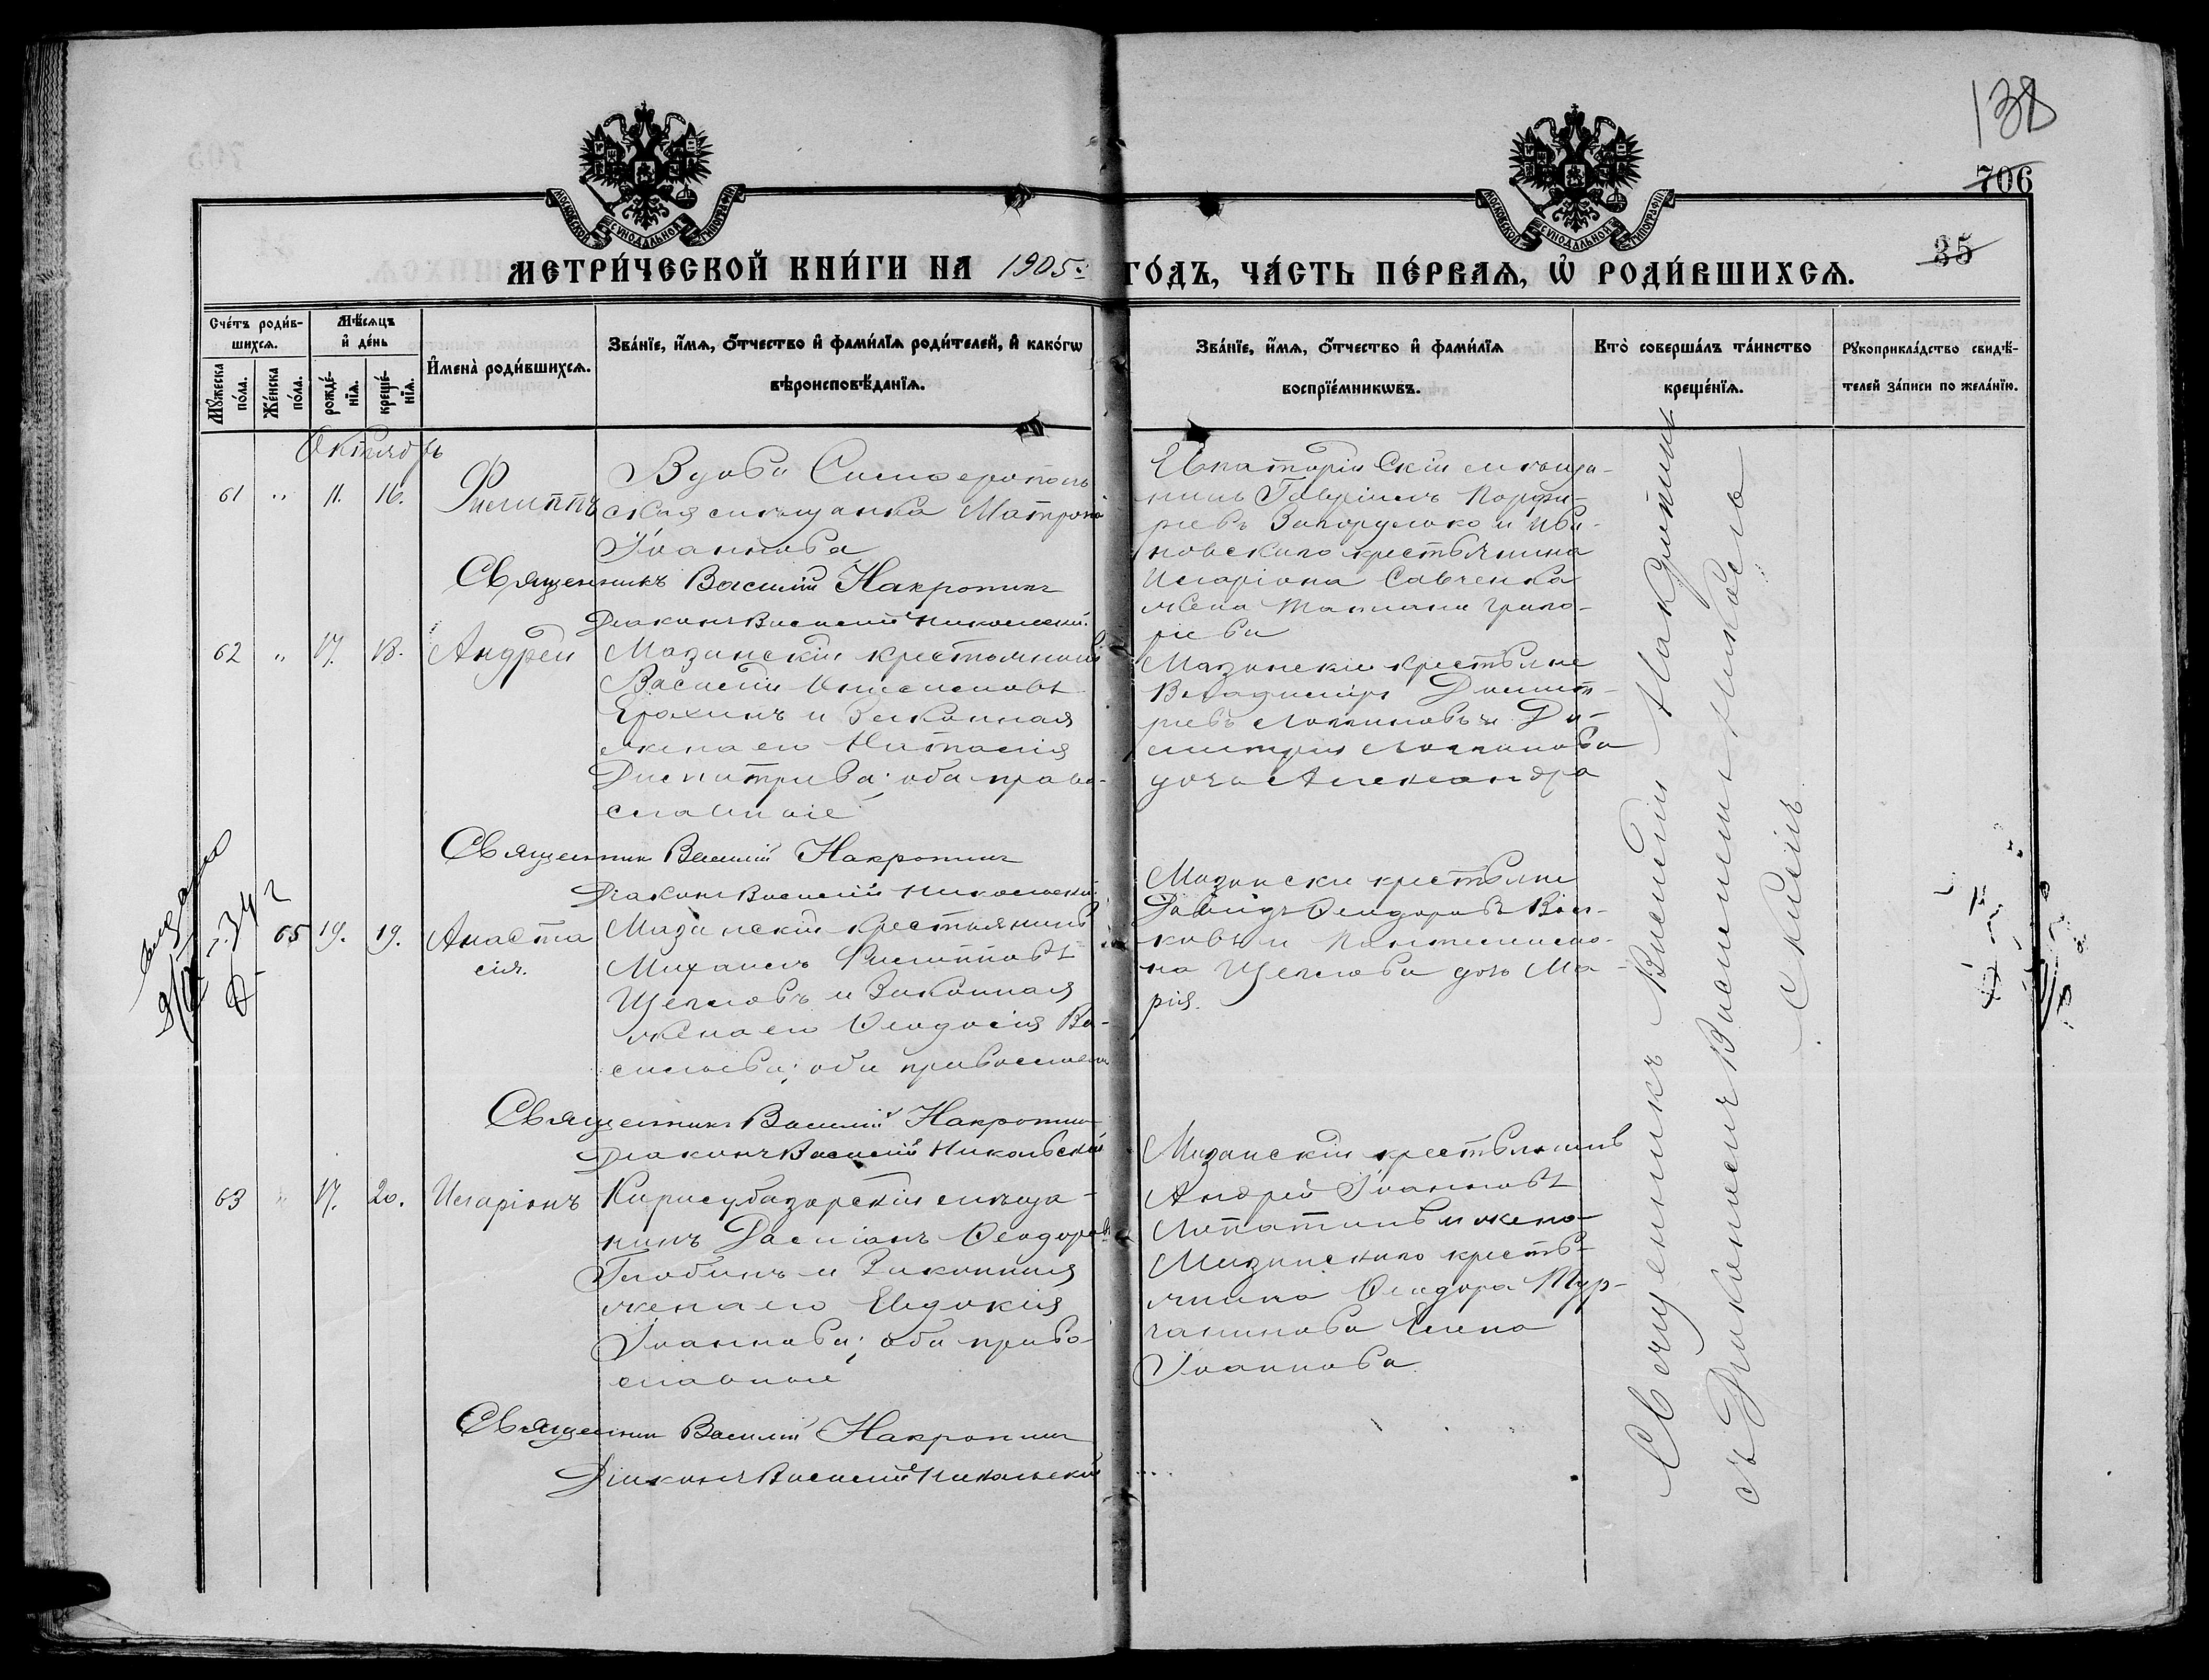 138
706
35
МОСКОВСКОЙ СѴНОДАЛЬНОЙ ТИПОГРАФІИ
МОСКОВСКОЙ СѴНОДАЛЬНОЙ ТИПОГРАФІИ
МЕТРИ́ЧЕСКОЙ КНИ́ГИ НА 1905. ГО́ДЪ, ЧА́СТЬ ПЕ́РВАЯ, Ѡ РОДИ́ВШИХСЯ.
Сче́тъ роди́в-
шихся.
Му́жеска по́ла.
Же́нска по́ла.
Мѣ́сяцъ
и де́нь
рожде́-
нія.
креще́-
нія.
Имена̀ роди́вшихся.
Зва́нїе, и́мя, о́тчество и фами́лїя роди́телей, и како́гѡ
вѣроисповѣ́данїя.
Зва́нїе, и́мя, о́тчество и фами́лїя
воспрїе́мникѡвъ.
Кто̀ соверша́лъ та́инство
креще́нїя.
Рꙋкоприкла́дство свидѣ́-
телей за́писи по жела́нїю.
Октябрь
61 " 11. 16. Филиппъ
Вдова Симферополь
ская мѣщанка Матрона
Іоаннова
Евпаторійскій мѣща-
нинъ Гавріилъ Порфи-
рьевъ и Ива-
новскаго крестьянина
Иларіона Савченка
жена Татіана Григо-
рьева
Священникъ Василій Накропинъ
Діаконъ Василій Никольскій.
62 " 17. 18. Андрей
Мазанскій крестьянинъ
Василій
Ерохинъ и Законная
жена его Наталія
Димитріева; оба право-
славные
Мазанскіе крестьяне
Владиміръ Димит-
ріевъ Логвиновъ и Ди-
митрія Логвинова
дочь Александра
Священникъ Василій Накропинъ
Діаконъ Василій Никольскій.
65 19. 19. Анаста
сія.
Мазанскій крестьянинъ
Михаилъ Филипповъ
Щегловъ и Законная
жена его Ѳеодосія Ва-
сильева; оба православн
Мазанскіе крестьяне
Давидъ Ѳеодоровъ Вол-
ковъ и Пантелеимо-
на Щеглова дочь Ма-
рія.
Священникъ Василій Накропинъ
Діаконъ Василій Никольскій
63 " 17. 20. Иларіонъ
Карасубазарскій мѣща-
нинъ Даміанъ Ѳеодоровъ
Глобинъ и Законная
жена его Евдокія
Іоаннова; оба право-
славные
Мазанскій крестьянинъ
Андрей Іоанновъ
Лопатинъ и жена
Мазанскаго кресть-
янина Ѳеодора Тур-
чанинова Елена
Іоаннова
Священникъ Василій Накропинъ
Діаконъ Василій Никольскій
Священникъ Василій Накропинъ
съ Діакономъ Василіемъ Николь
скимъ